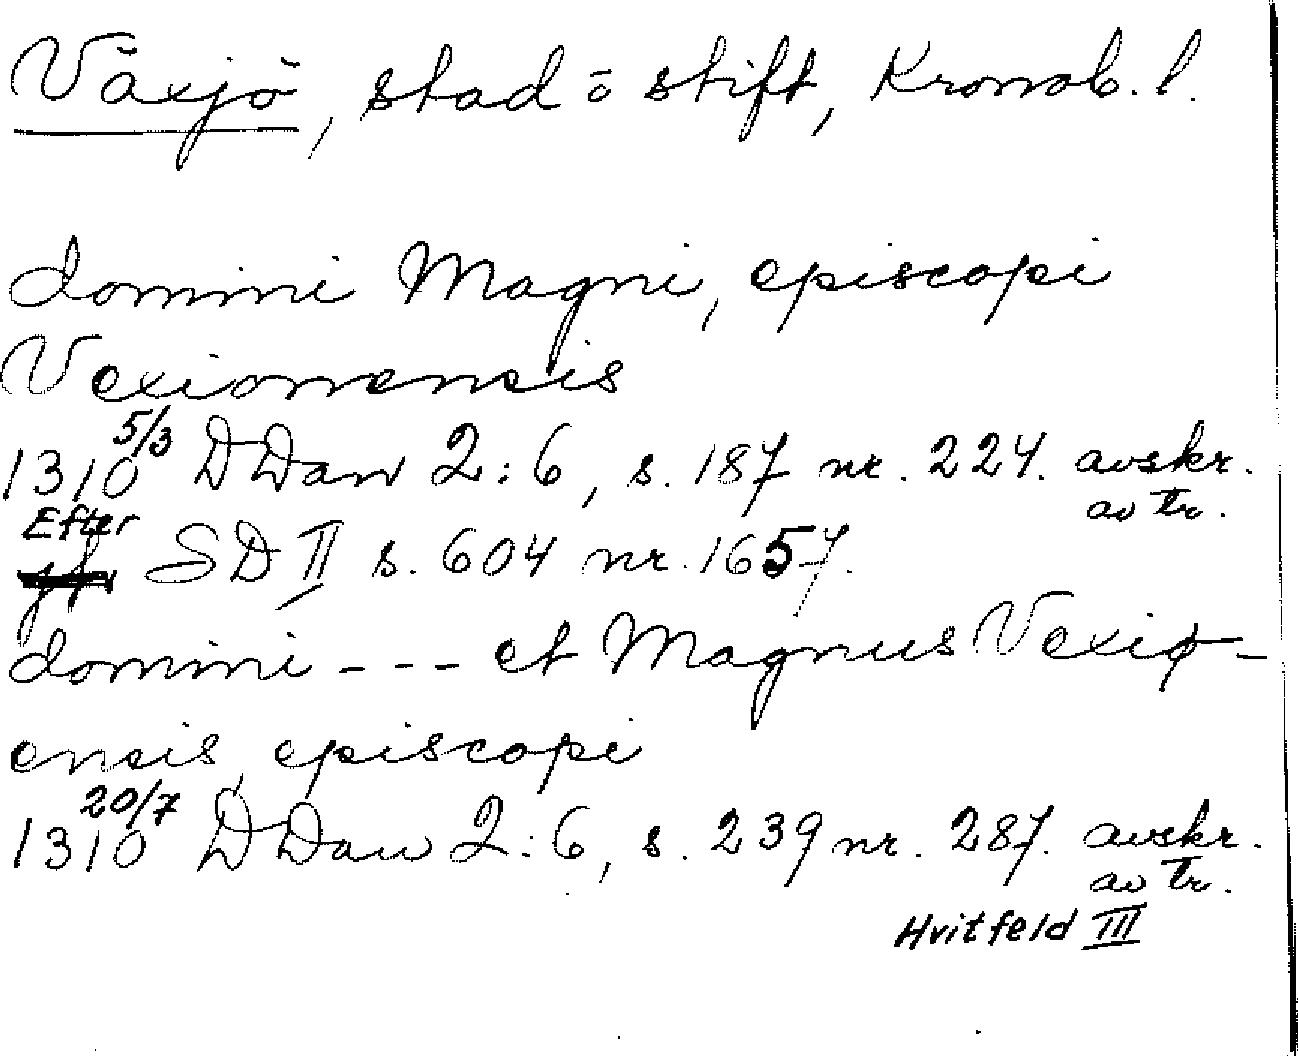 Växjö, stad ō stift, Kronob. l.
domini Magni, episcopi
Vexionensis
1310 5/3 DDan 2:6, s. 187 nr. 224. avskr.
av tr.
Efter
SD II s. 604 nr. 1657.
domini --- et Magnus Vexio-
ensis, episcopi
1310 20/7 DDan 2:6, s. 239 nr. 287. avskr.
av tr.
Hvitfeld III